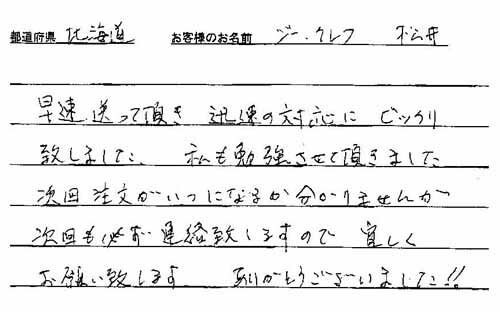 都道府県 北海道 お客様のお名前 ジー・クレフ 松井
早速送って頂き 迅速の対応に ビックリ
致しました。 私も勉強させて頂きました
次回注文がいつになるか分かりませんが
次回も必ず連絡致しますので 宜しく
お願い致します ありがとうございました!!